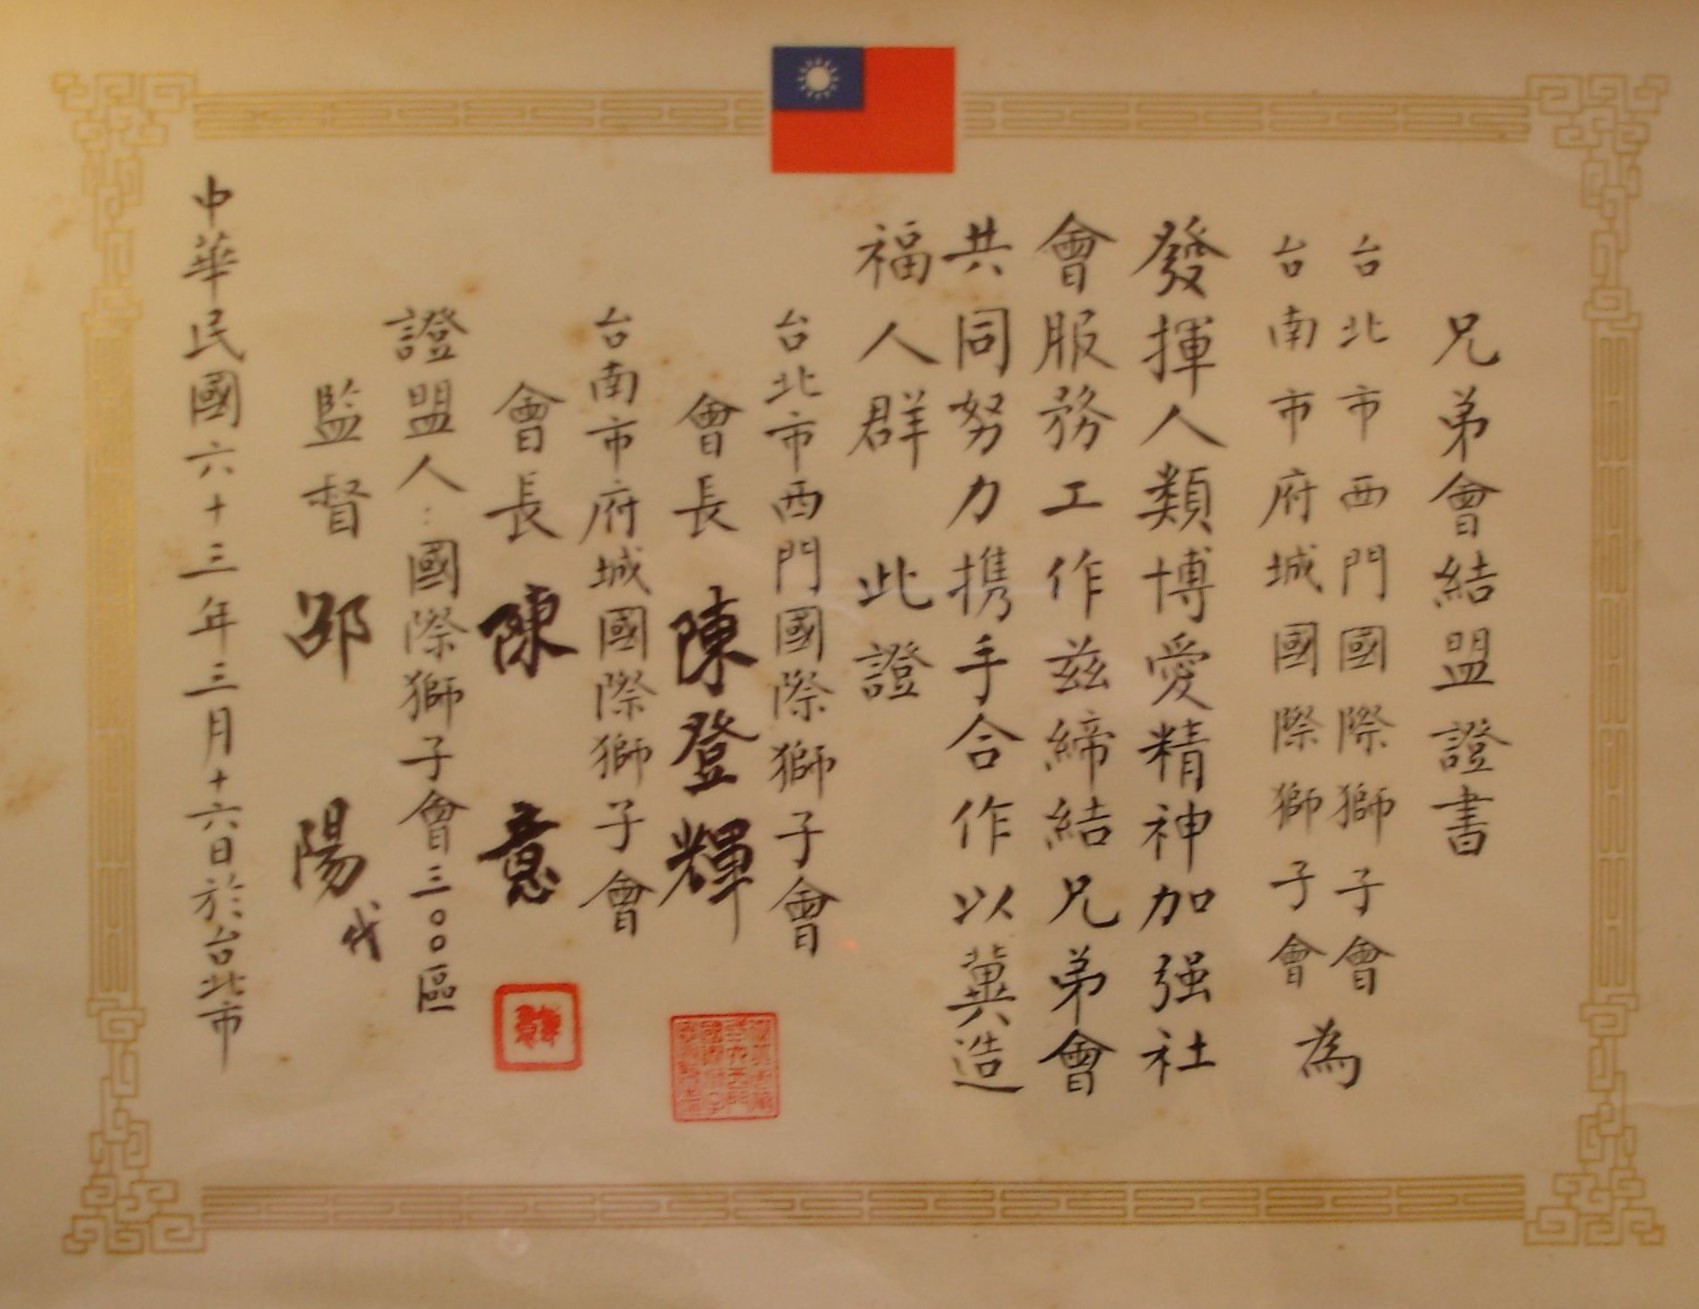 兄弟會結盟證書
台北市西門國際獅子會
台南市府城國際獅子會
為
發揮人類博愛精神加强社
會服務工作茲締結兄弟會
共同努力携手合作以冀造
福人群　此證
台北市西門國際獅子會
會長 陳登輝
台南市府城國際獅子會
會長 陳意
證盟人：國際獅子會三〇〇區
監督 邵陽代
中華民國六十三年三月十六日於台北市